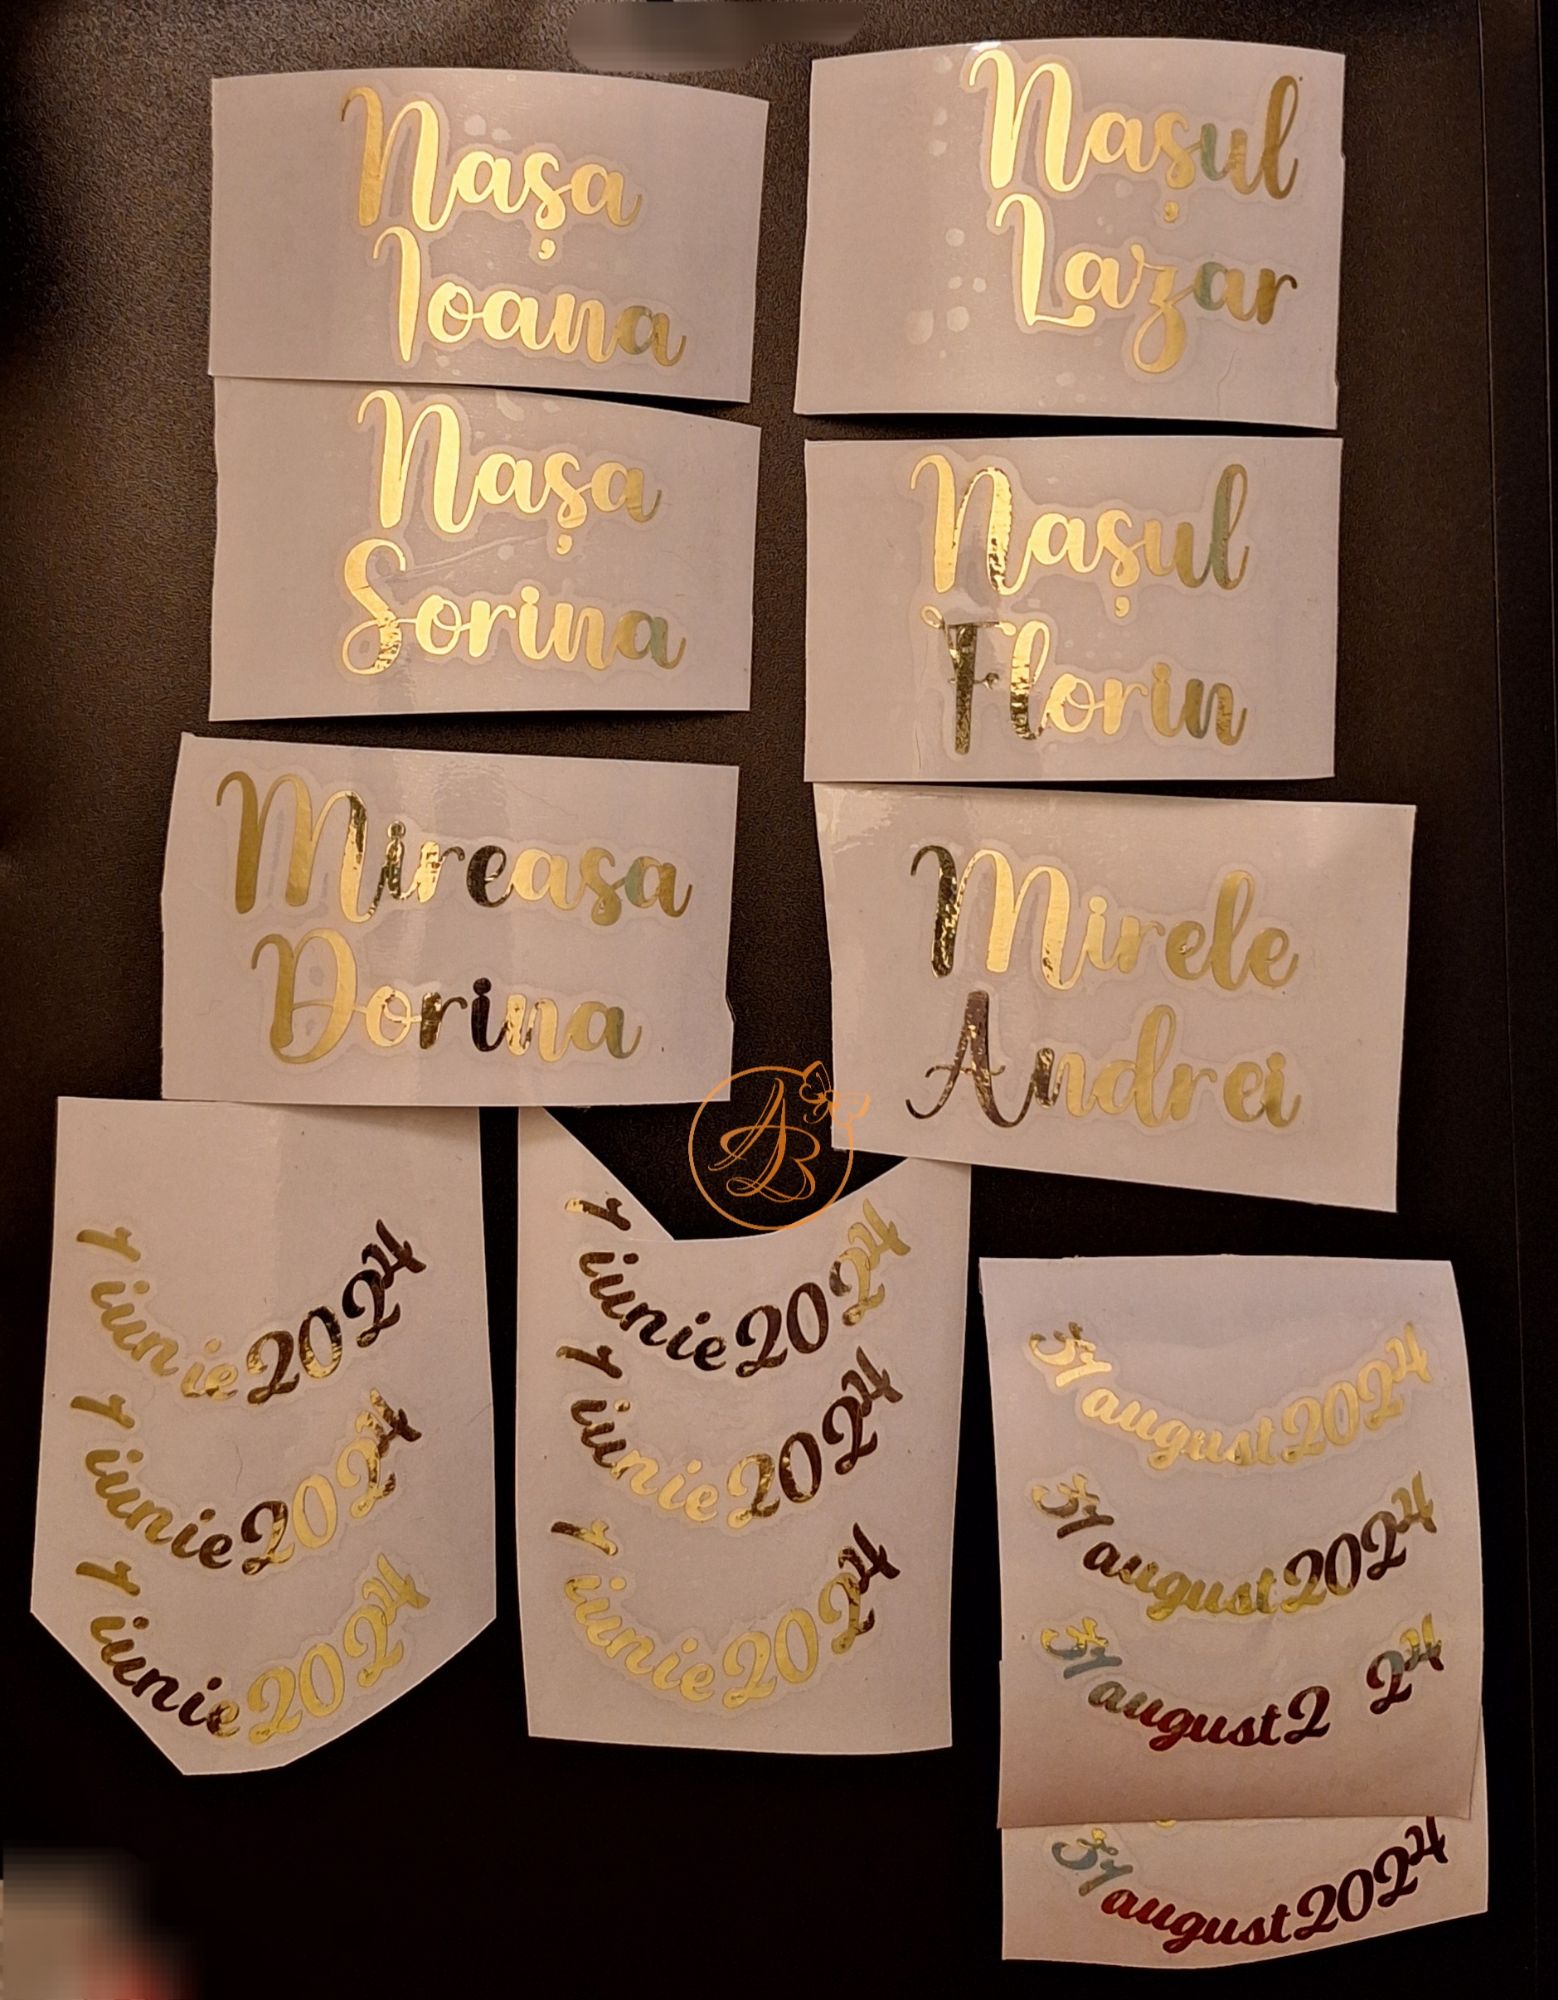 Nașa
Ioana
Nașul
Lazar
Nașa
Sorina
Nașul
Florin
Mireasa
Dorina
Mirele
Andrei
AB
1 iunie 2024
1 iunie 2024
1 iunie 2024
1 iunie 2024
1 iunie 2024
1 iunie 2024
31 august 2024
31 august 2024
31 august 2 24
31 august 2024